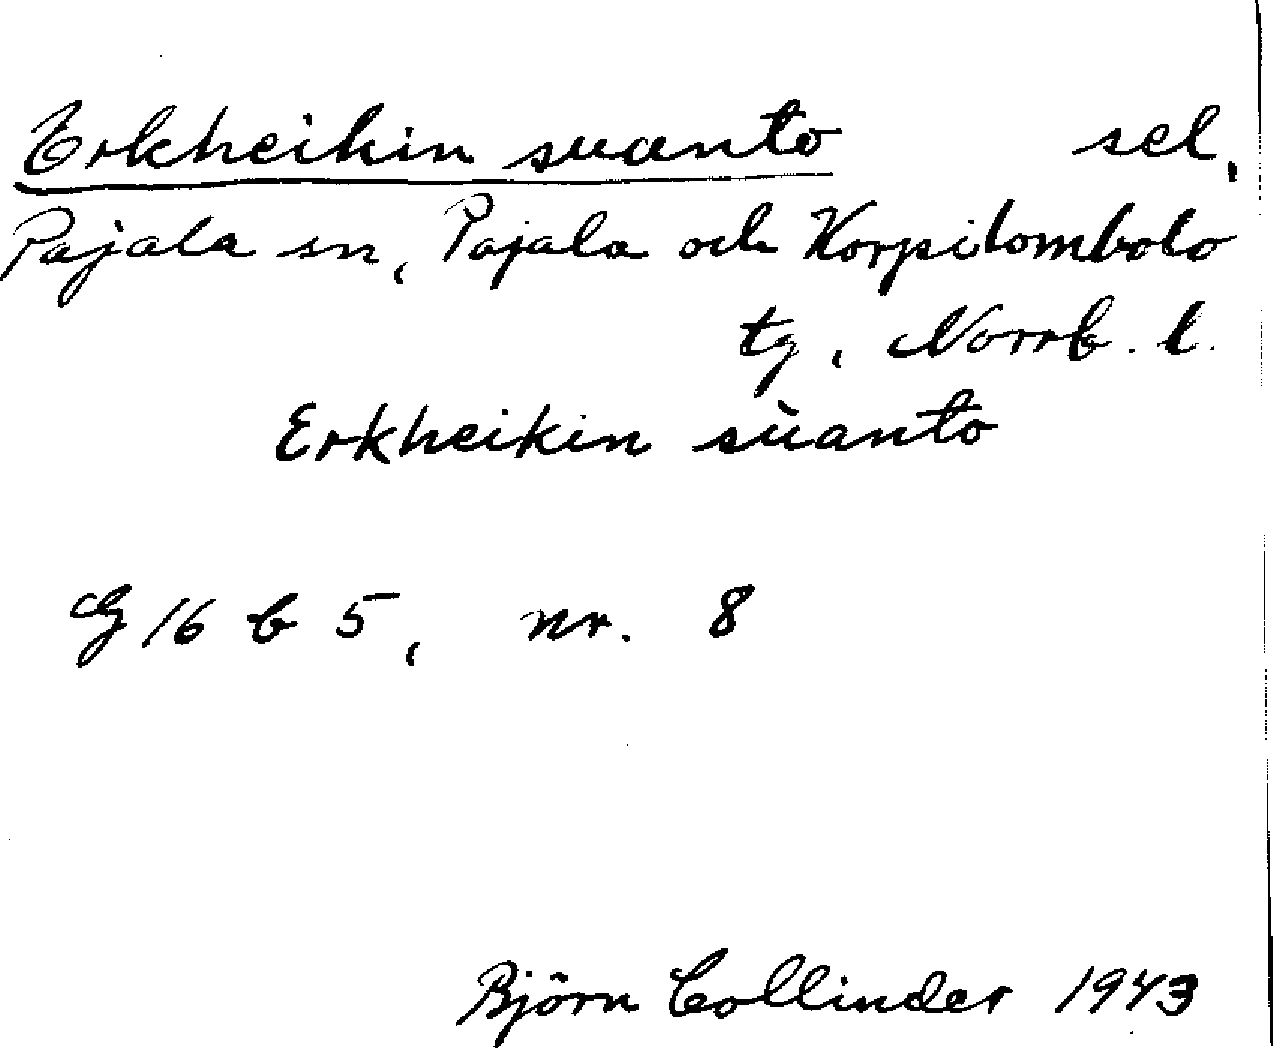 Erkheikin suanto sel,
Pajala sn, Pajala och Korpilombolo
tg, Norrb. l.
Erkheikin sùanto
G 16 b 5, nr. 8
Björn Collinder 1943